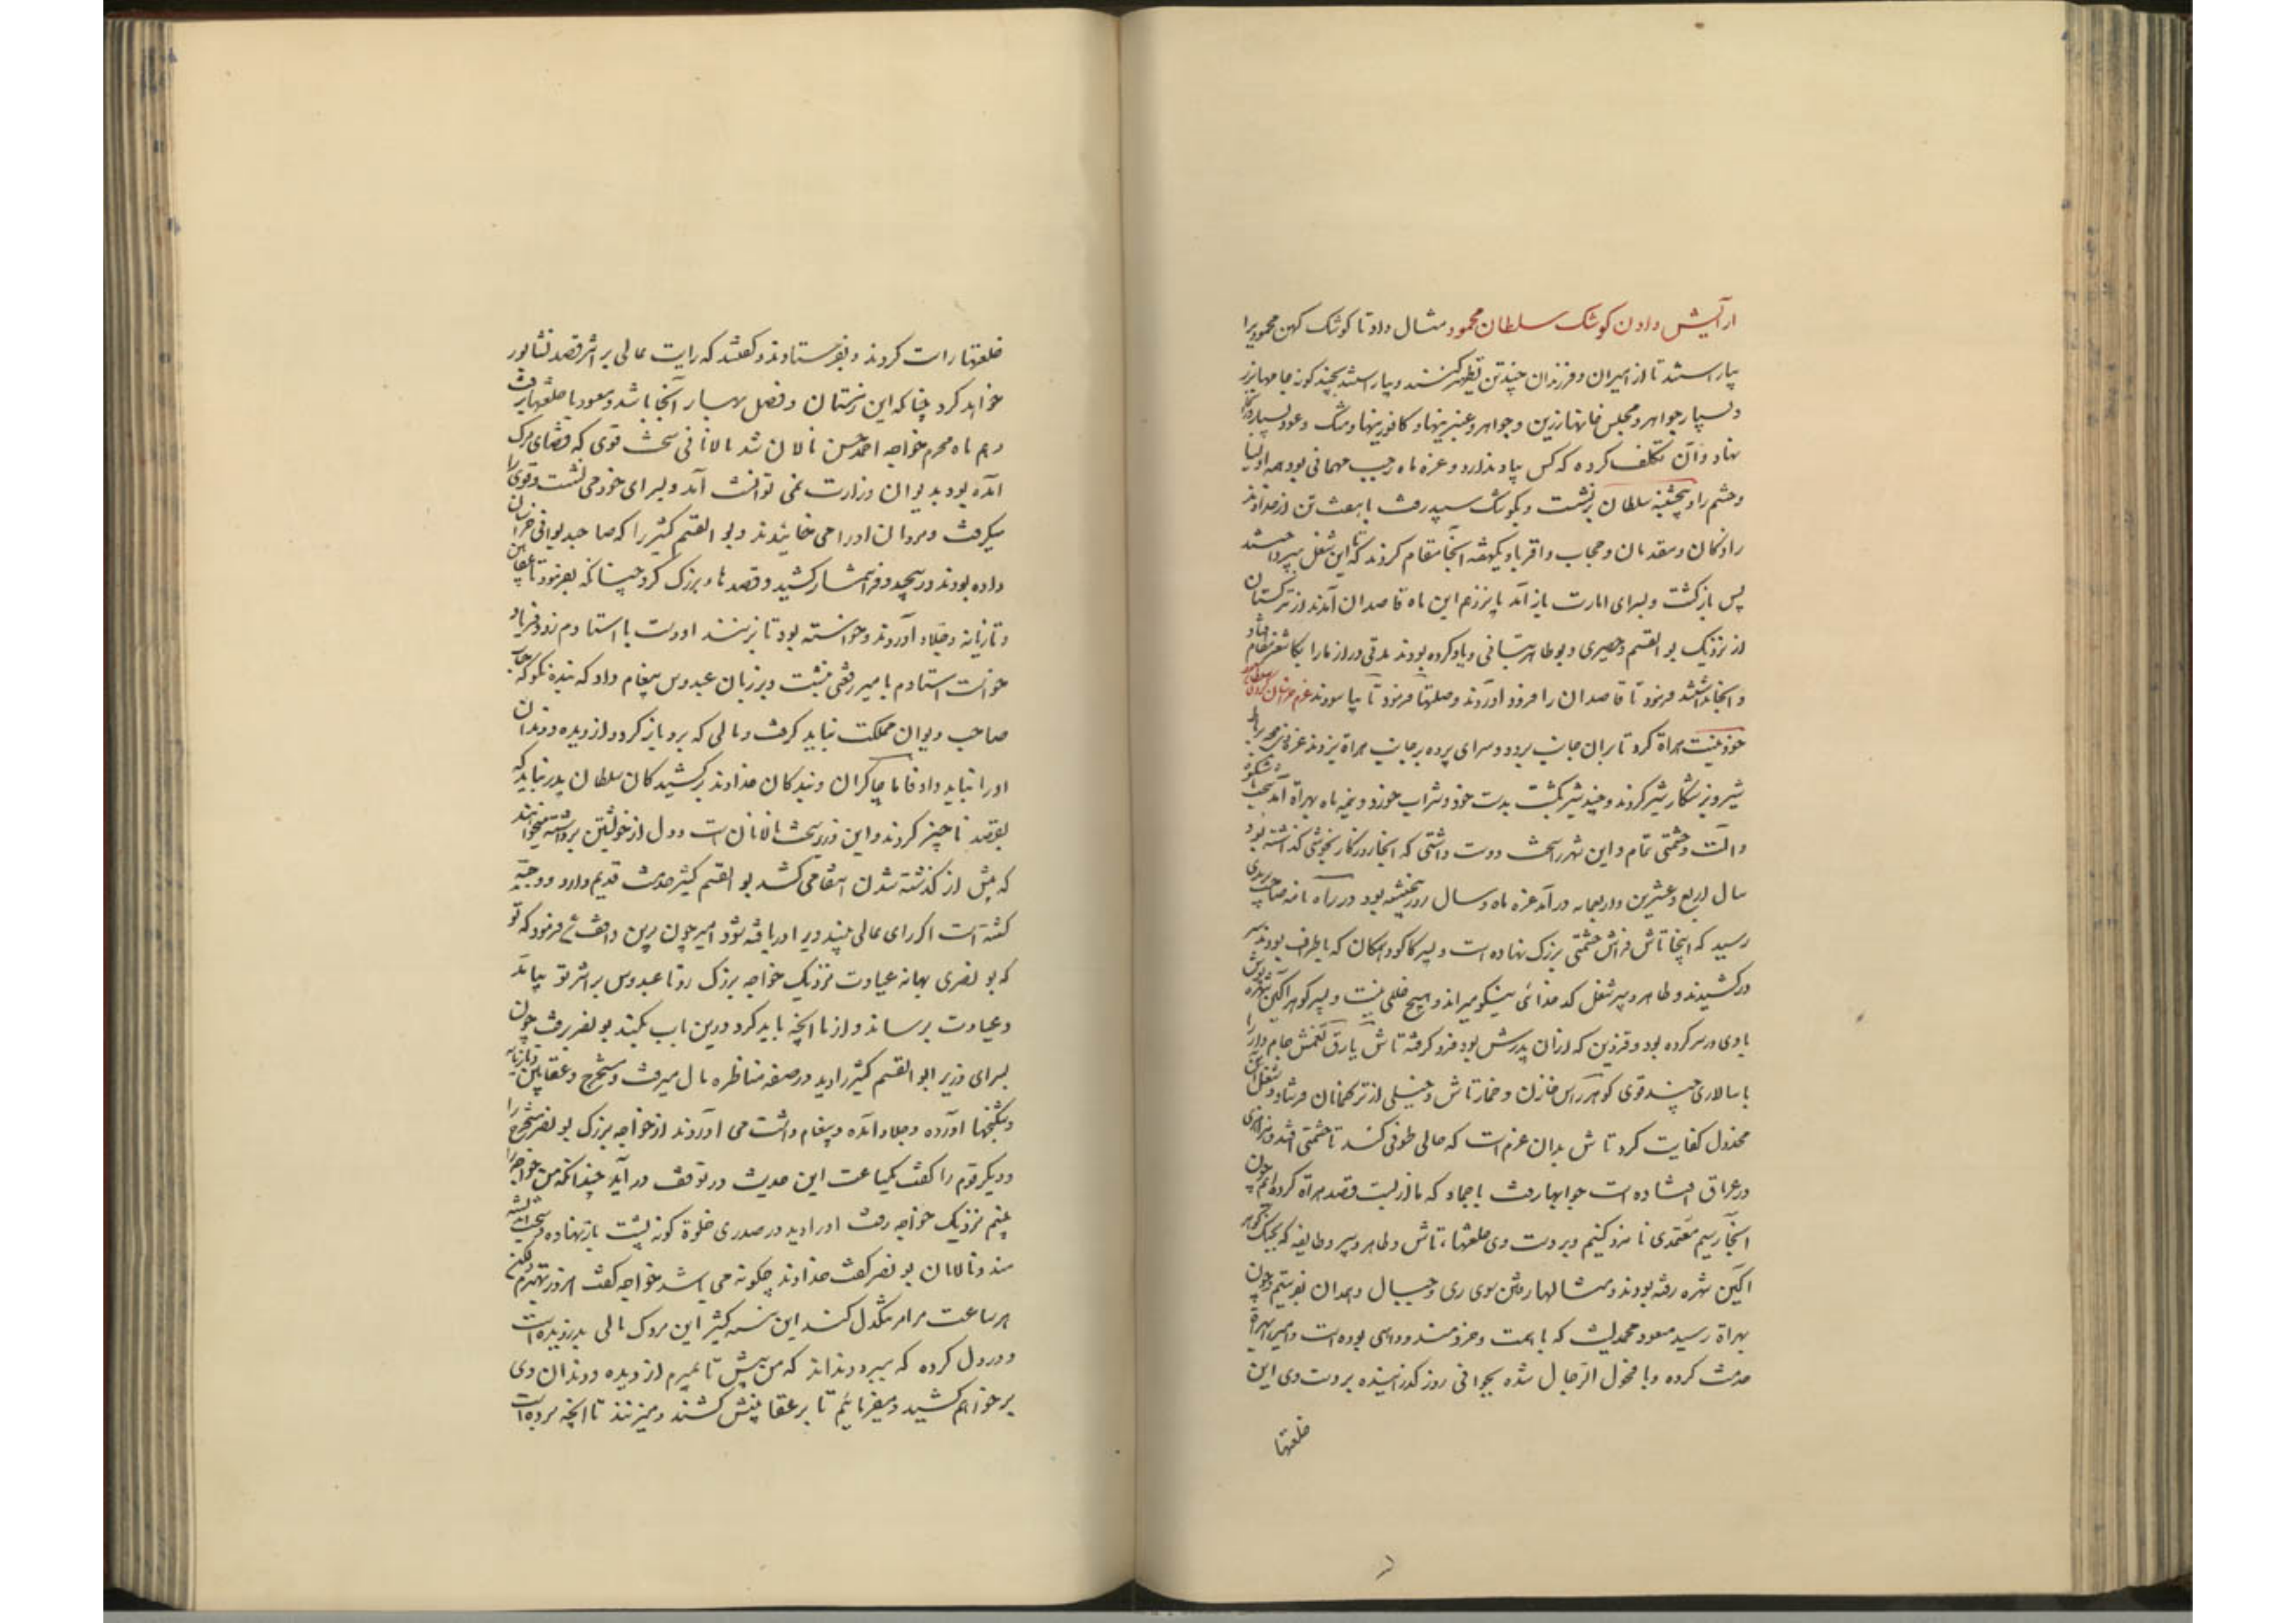 آرایش دادن کوشک سلطان محمود مثال داد تا کوشک کهن محمودیرا
بیاراستند تا از امیران و فرزندان چندتن تطهیر کنند و بیاراستند بچند گونه جامها بزر
و بسیار جواهر و مجلس خانها زرین و جواهر و عنبرینها و کافورینها و مشک و عود بسیار در آنجا
نهاد و آن تکلف کرده که کس بیاد ندارد و غره ماه رجب مهمانی بود همه اولیا
و حشم را و پنجشنبه سلطان برنشست و بکوشک سپید رفت با هفت تن از خداوند
زادگان و مقدمان و حجاب و اقربا و یکهفته آنجا مقام کردند تا که این شغل بپرداختند
پس بازگشت و بسرای امارت باز آمد پانزدهم این ماه قاصدان آمدند از ترکستان
از نزدیک بو القسم حصیری و بوطاهر تبانی و یاد کرده بودند مدتی دراز ما را بکاشغر مقام افتاد
و آنجا بداشتند فرمود تا قاصدان را فرود آوردند و صلتها فرمود تا بیاسودند عزم خراسان کردن
خود نیت هراة کرد تا بران جانب برود و سرای پرده بر جانب هراة بزدند
شیر و یز شکار شیر کردند و چند شیر بکشت بدست خود و شراب خورد و نیمه ماه بهراة آمد سخت باشکوه
و آلت و حشمتی تمام و این شهر را سخت دوست داشتی که آنجا روزگار بخوشی گذاشته بود
سال اربع و عشرین و اربعمایه در آمد غره ماه و سال روز پنجشنبه بود در راه نامه صاحب برید ری
رسید که اینجا تاش فراش حشمتی بزرگ نهاده است و پسر کاکو و همگان که باطراف بودند سر
درکشیدند و طاهر دبیر شغل کدخدائی نیکو میراند و هیچ خللی نیست و پسر گوهر آگین شهره نوش
بادی در سر کرده بود و قزوین که از آن پدرش بود فرو گرفته تاش یارق تغمش جامه دار را
با سالاری چند قوی گوهرراس خازن و خمارتاش و خیلی از ترکمانان فرستاد و شغل آن
مخذول کفایت کرد تاش بدان عزم است که حالی طوفی کند تا حشمتی افتد
در عراق افتاده است جوابها رفت باحماد که ما از بست قصد هراة کرده‌ایم چون
آنجا رسیم معتمدی نامزد کنیم و بر دست وی خلعتها، تاش و طاهر دبیر و طایفه که بجنگ گوهر
آگین شهره رفته بودند و مثالها رفتن سوی ری و جبال و همدان بفرستیم و چون
بهراة رسید مسعود محمد لیث که با همت و خردمند و داهی بوده است و امیر را بهراة
خدمت کرده و با فحول الرجال شده بجوانی روز گذرانیده بر دست وی این
خلعتها
خلعتها راست کردند و بفرستادند و گفتند که رایت عالی بر اثر قصد نشابور
خواهد کرد چنانکه این زمستان و فصل بهار آنجا باشد و مسعود با خلعتها برفت
دهم ماه محرم خواجه احمد حسن نالان شد نالانئی سخت قوی که قضای مرگ
آمده بود بدیوان وزارت نمی توانست آمد و بسرای خود می نشست و قومی را
میگرفت و مردمان او را می خائیدند و بو القسم کثیر را که صاحبدیوانی خراسان
داده بودند درپیچید و فرا شمار کشید و قصدها بزرگ کرد چنانکه بفرمود تا عقابین
و تازیانه و جلاد آوردند و خواسته بود تا بزنند او دست با استادم زد و فریاد
خواست استادم بامیر رقعتی نبشت و بر زبان عبدوس پیغام داد که بنده نگوید که حساب
صاحب دیوان مملکت نباید گرفت و مالی که برو باز گردد از دیده و دندان
او را نباید داد فاما چاکران و بندگان خداوند برکشیدگان سلطان پدر نباید که
بقصد ناچیز گردند و این وزیر سخت نالانست و دل از خویشتن برداشته میخواهد
که پیش از گذشته شدن انتقامی کشد بو القسم کثیر خدمت قدیم دارد و وجیه
گشته است اگر رای عالی بیند ویرا دریافته شود امیر چون برین واقف شد فرمود که تو
که بو نصری بهانه عیادت نزدیک خواجه بزرگ رو تا عبدوس بر اثر تو بیاید
و عیادت برساند و از ما آنچه باید کرد درین باب بکند بو نصر برفت چون
بسرای وزیر ابو القسم کثیر را دید در صفه مناظره مال میرفت و مستخرج و عقابین و تازیانه
و شکنجها آورده و جلاد آمده و پیغام درشت می آوردند از خواجه بزرگ بو نصر مستخرج را
و دیگر قوم را گفت یکساعت این حدیث در توقف دارید چندانکه من خواجه را
بینم نزدیک خواجه رفت او را دید در صدری خلوة گونه پشت باز نهاده و سخت اندیشه
مند و نالان بو نصر گفت خداوند چگونه می باشد خواجه گفت امروز بهترم ولیکن
هر ساعت مرا تنگدل کند این نبسه کثیر این مردک مالی بدزدیده است
و در دل کرده که ببرد و نداند که من پیش تا بمیرم از دیده و دندان وی
بر خواهم کشید و میفرمایم تا بر عقابینش کشند و میزنند تا آنچه برده است